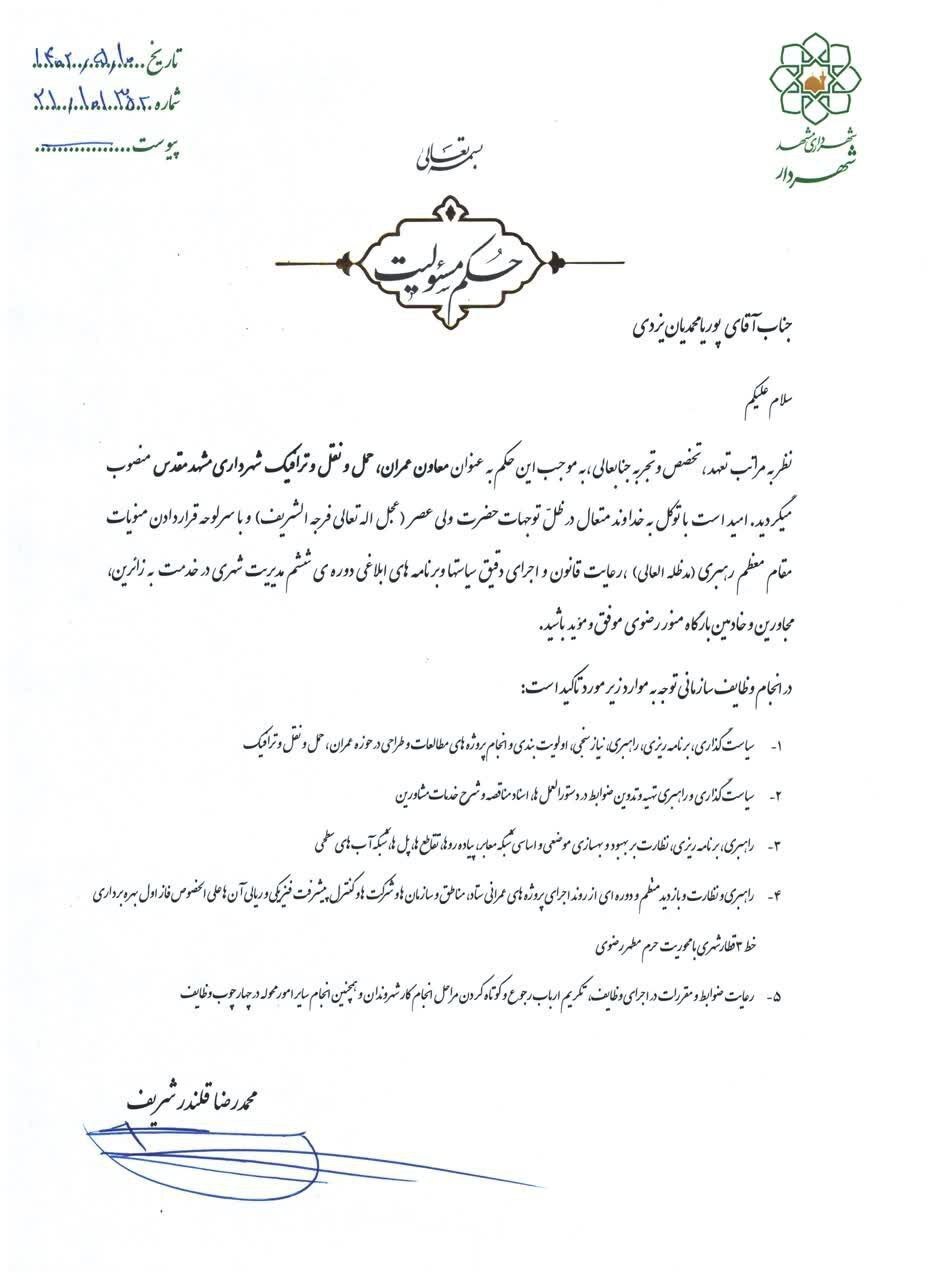 شهرداری مشهد
شهردار
تاریخ ۱۴۰۲/۵/۱۰
شماره
پیوست
بسمه تعالی
حکم مسئولیت
جناب آقای پوریا محمدیان یزدی
سلام علیکم
نظر به مراتب تعهد، تخصص و تجربه جنابعالی ،به موجب این حکم به عنوان معاون عمران، حمل و نقل و ترافیک شهرداری مشهد مقدس منصوب
میگردید. امید است با توکل به خداوند متعال در ظلّ توجهات حضرت ولی عصر (عجل اله تعالی فرجه الشریف) و با سرلوحه قرار دادن منویات
مقام معظم رهبری (مدظله العالی) ،رعایت قانون و اجرای دقیق سیاستها وبرنامه های ابلاغی دوره ی ششم مدیریت شهری در خدمت به زائرین،
مجاورین و خادمین بارگاه منور رضوی موفق و موید باشید.
در انجام وظایف سازمانی توجه به موارد زیر مورد تاکید است:
۱- سیاست گذاری، برنامه ریزی، راهبری، نیاز سنجی، اولویت بندی و انجام پروژه های مطالعات و طراحی در حوزه عمران، حمل و نقل و ترافیک
۲- سیاست گذاری و راهبری تهیه و تدوین ضوابط در دستورالعمل ها، اسناد مناقصه و شرح خدمات مشاورین
۳- راهبری، برنامه ریزی، نظارت بر بهبود و بهسازی موضعی و اساسی شبکه معابر، پیاده روها، تقاطع ها، پل ها، شبکه آب های سطحی
۴- راهبری و نظارت و بازدید منظم و دوره ای از روند اجرای پروژه های عمرانی ستاد، مناطق و سازمان ها و شرکت ها و کنترل پیشرفت فیزیکی و ریالی آن ها علی الخصوص فاز اول بهره برداری
خط ۳ قطار شهری با محوریت حرم مطهر رضوی
۵- رعایت ضوابط و مقررات در اجرای وظایف، تکریم ارباب رجوع و کوتاه کردن مراحل انجام کار شهروندان و همچنین انجام سایر امور محوله در چهارچوب وظایف
محمدرضا قلندر شریف